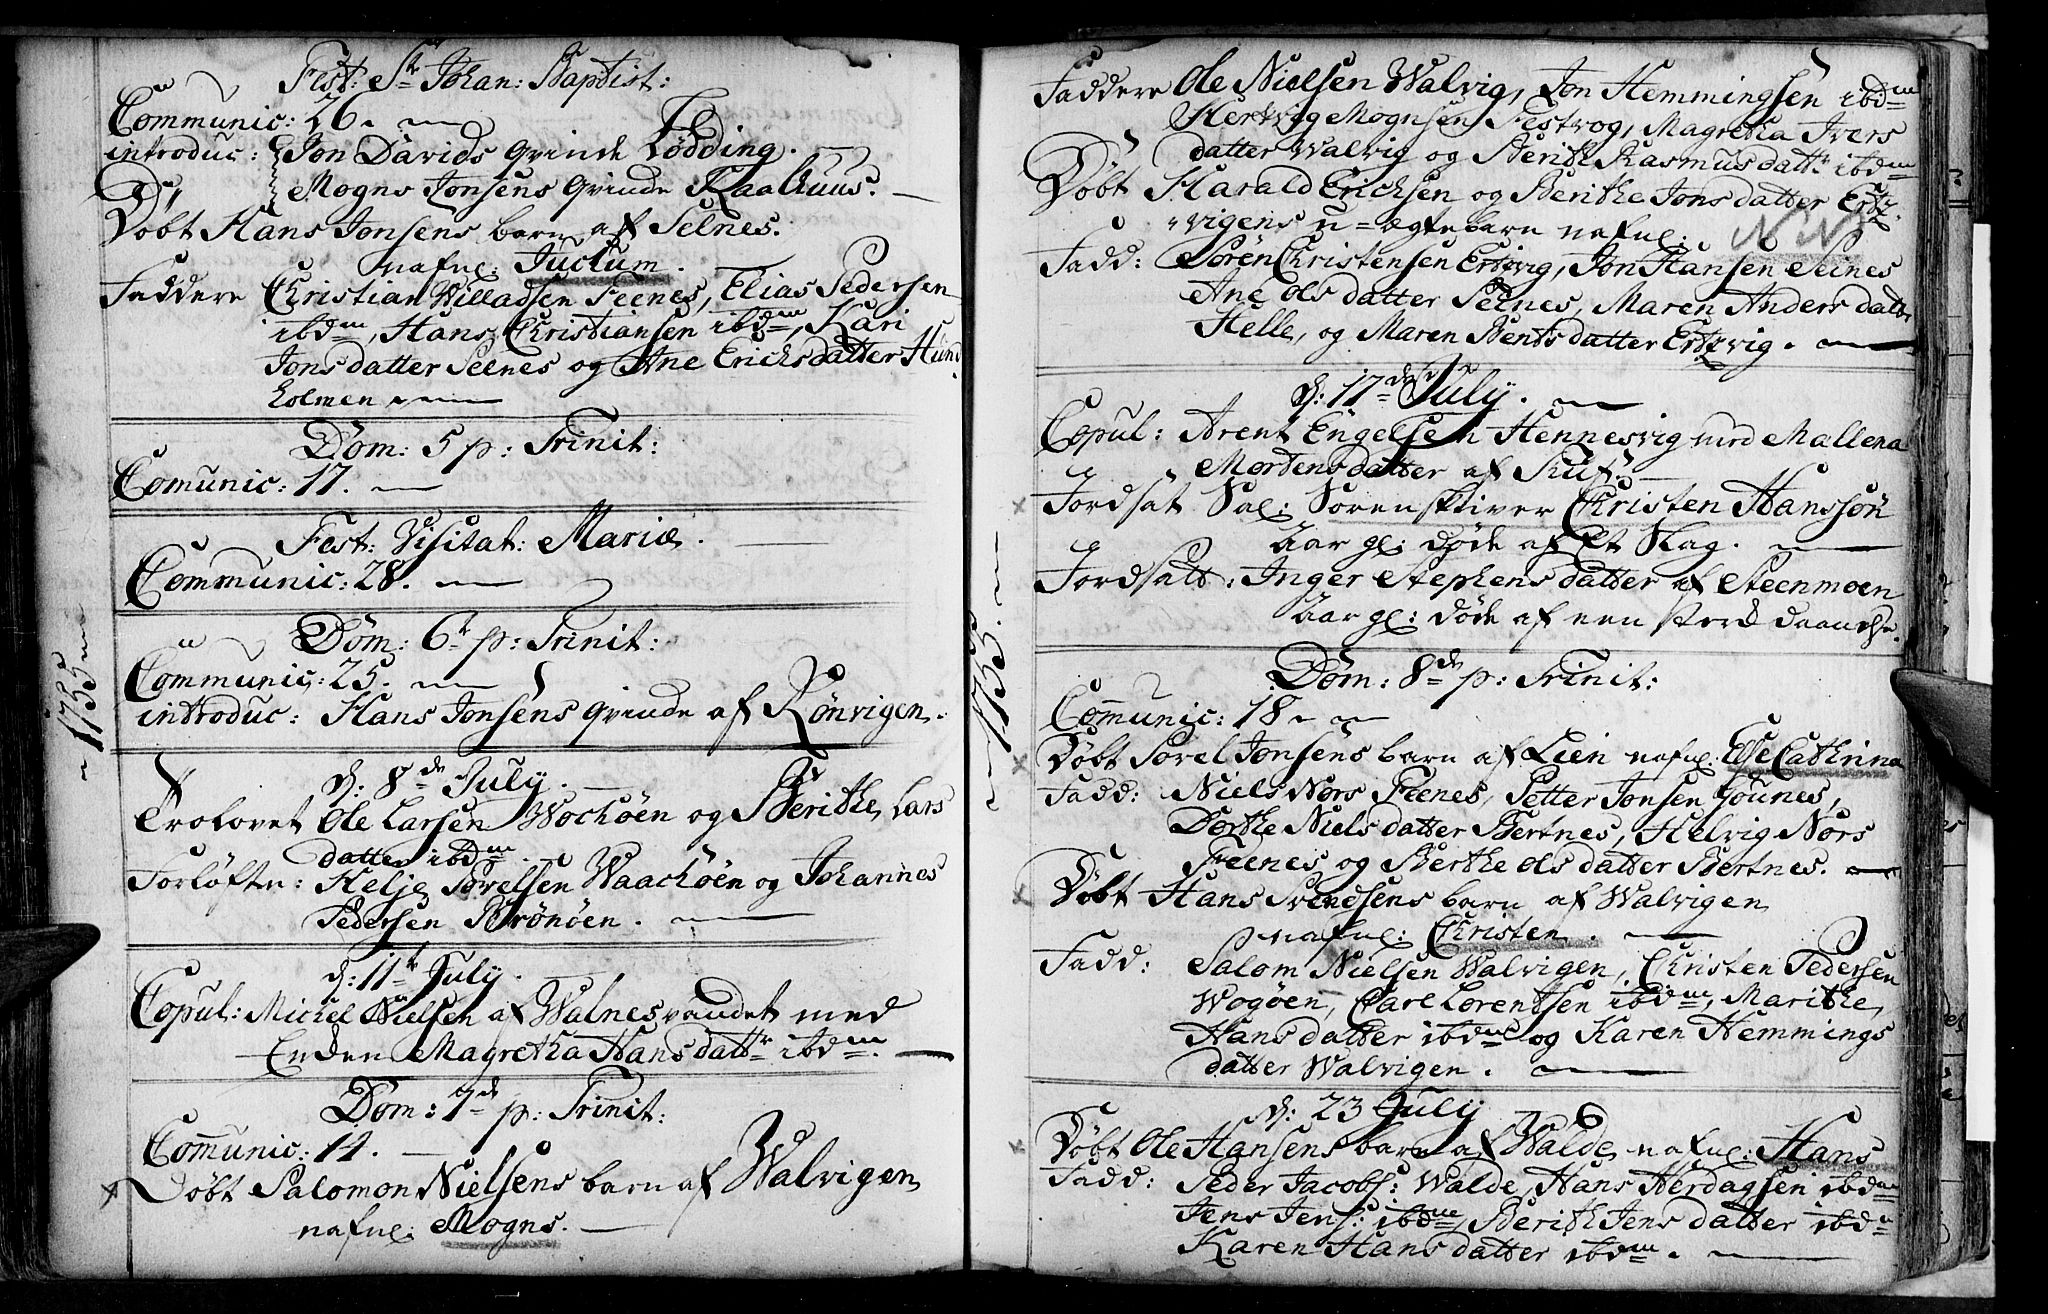 Fest: S.t Johan: Baptist:
Communic: 26.
introduc: Jon Davids Qvinde Lødding.
Mogns Jonsens Qvinde Kaalhuus.
Døbt Hans Jonsens barn af Selnes.
nafnl: Juclum.
Faddere Christian Willadsen Feenes, Elias Pedersen
ibd.m, Hans Christiansen ibd.m, Kari
Jons datter Seenes og Ane Erichs datter Hund
holmen
Dom: 5 p: Trinit:
Comunic: 17.
Fest: Visitat: Mariæ.
Communic: 28.
1755
Dom: 6.t p: Trinit:
Communic: 25.
introduc: Hans Jonsens Qvinde af Rønvigen.
d: 8.de July.
Trolovet Ole Larsen Wochøen og Berithe Lars
datter ibd.m.
Forløftr: Helje Torelsen Waachøen og Johannes
Pedersen Brønøen.
d: 11.t July.
Copul: Michel Nielsen af Walnesvandet med
Enden Magretha Hans datt.r ibd.m.
Dom: 7.de p: Trinit:
Comunic: 14.
Døbt Salomon Nielsens barn af Walvigen
nafnl: Mogns.
Faddere Ole Nielsen Walvig, Jon Hemmingsen ibd.m
Hertvig Mognsen Festvog, Magretha Ivers
datter Walvig og Berithe Rasmus datt.r ibd.m
Døbt Harald Erichsen og Berithe Jons datter Ertz
vigens u=ægte barn nafnl:
Fadd: Søren Christensen Ertzvig, Jon Hansen Seines
Ane Ols datter Seenes, Maren Anders datter
Helle, og Maren Bents datter Ertzvig.
d: 17.de July.
Copul: Arent Engelsen Hennesvig med Mallena
Mortens datter af
Jordsat Sal: Sorenskriver Christen Hanssøn
Aar gl: døde af Et Slag.
1755.
Jordsatt: Inger Stephens datter af Steenmoen
Aar gl: døde af een
Dom: 8.de p: Trinit:
Comunic: 18
Døbt Torel Jonsens barn af Leen nafnl: Else Cathrina
Fadd: Niels Nors Feenes, Petter Jonsen Godnes,
Dorthe Niels datter Bertnes, Helvig Nors
Feenes og Berthe Ols datter Bertnes.
Døbt Hans Svendsens barn af Walvigen
nafnl: Christen.
Fadd: Salom Nielsen Walvigen, Christen Pedersen
Wogøen, Carl Lorentsen ibd.m, Marithe
Hans datter ibd.m og Karen Hemmings
datter Walvigen.
d: 23 July
Døbt Ole Hansens barn af Walde nafnl: Hans
Fadd: Peder Jacobs: Walde, Hans Herdagsen ibd.m
Jens Jens: ibd.m, Berith Jens datter ibd.m
Karen Hans datter ibd.m.